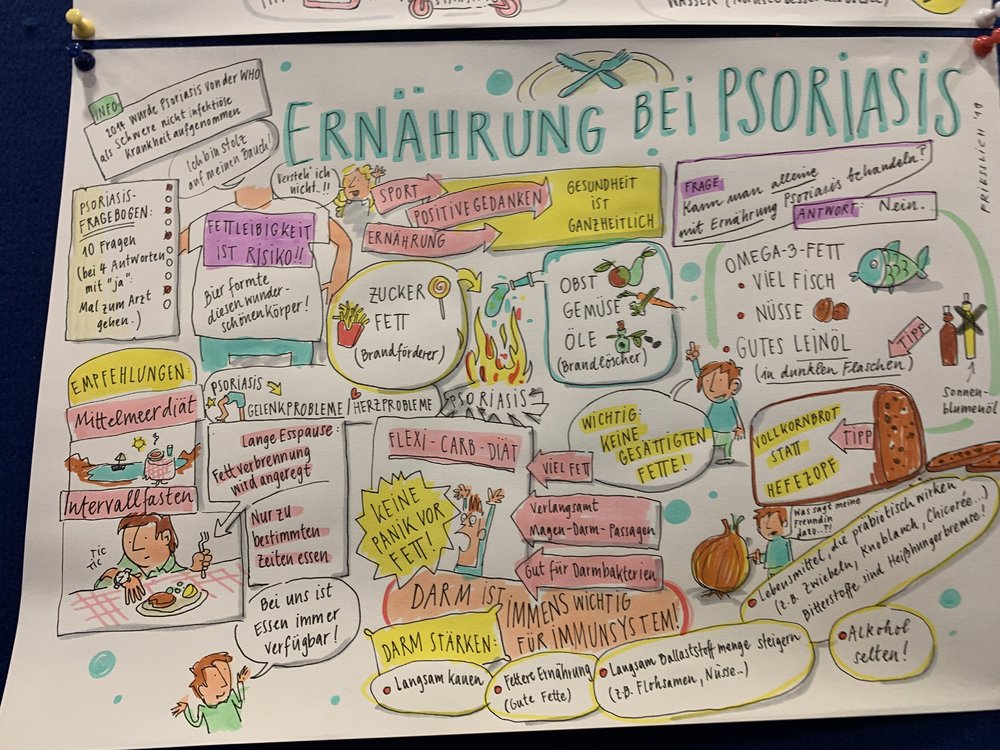 WASSER
ERNÄHRUNG BEI PSORIASIS
PRIBSLICH '19
INFO:
2014 wurde Psoriasis von der WHO
als schwere nicht infektiöse
Krankheit aufgenommen
Ich bin stolz
auf meinen Bauch!
Versteh' ich
nicht..!!
PSORIASIS-
FRAGEBOGEN:
10 Fragen
(bei 4 Antworten
mit "ja":
Mal zum Arzt
gehen.)
FETTLEIBIGKEIT
IST RISIKO!!
Bier formte
diesen wunder-
schönen Körper!
SPORT
POSITIVE GEDANKEN
ERNÄHRUNG
GESUNDHEIT
IST
GANZHEITLICH
FRAGE:
Kann man alleine
mit Ernährung Psoriasis behandeln?
ANTWORT: Nein.
ZUCKER
FETT
(Brandförderer)
OBST
GEMÜSE
ÖLE
(Brandlöscher)
PSORIASIS
OMEGA-3-FETT
VIEL FISCH
NÜSSE
GUTES LEINÖL
(in dunklen Flaschen)
TIPP
Sonnen-
blumenöl
EMPFEHLUNGEN:
Mittelmeerdiät
Intervallfasten
TIC
TIC
PSORIASIS
GELENKPROBLEME/HERZPROBLEME
Lange Esspause:
Fettverbrennung
wird angeregt
Nur zu
bestimmten
Zeiten essen
Bei uns ist
Essen immer
verfügbar!
FLEXI-CARB-DIÄT
KEINE
PANIK VOR
FETT!
VIEL FETT
Verlangsamt
Magen-Darm-Passagen
Gut für Darmbakterien
WICHTIG:
KEINE
GESÄTTIGTEN
FETTE!
VOLLKORNBROT
STATT
HEFEZOPF
TIPP
Was sagt meine
Freundin
dazu..?!
Lebensmittel, die präbiotisch wirken
(z.B. Zwiebeln, Knoblauch, Chicorée...)
Bitterstoffe sind Heißhungerbremse!
DARM IST IMMENS WICHTIG
FÜR IMMUNSYSTEM!
DARM STÄRKEN:
Langsam kauen
Fettere Ernährung
(Gute Fette)
Langsam Ballaststoffmenge steigern
(z.B. Flohsamen, Nüsse..)
Alkohol
selten!